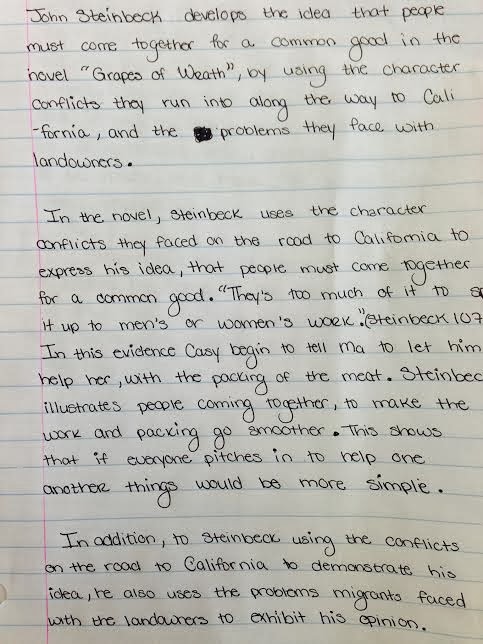 John Steinbeck develops the idea that people
must come together for a common good in the
novel "Grapes of Weath", by using the character
conflicts they run into along the way to Cali
-fornia, and the problems they face with
landowners.
In the novel, Steinbeck uses the character
conflicts they faced on the road to California to
express his idea, that people must come together
for a common good. "They's too much of it to sp
it up to men's or women's work". (Steinbeck 107
In this evidence Casy begin to tell Ma to let him
help her, with the packing of the meat. Steinbec
illustrates people coming together, to make the
work and packing go smoother. This shows
that if everyone pitches in to help one
another things would be more simple.
In addition, to Steinbeck using the conflicts
on the road to California to demonstrate his
idea, he also uses the problems migrants faced
with the landowners to exhibit his opinion.